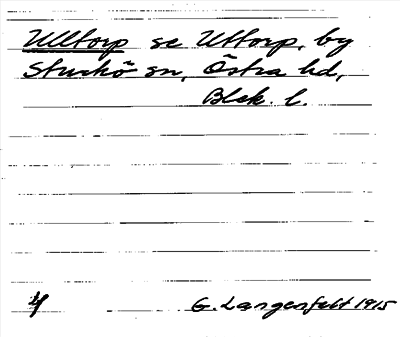 Ulltorp se Uttorp, by
Sturkö sn, Östra hd,
Blek. l.
G. Langenfelt 1915